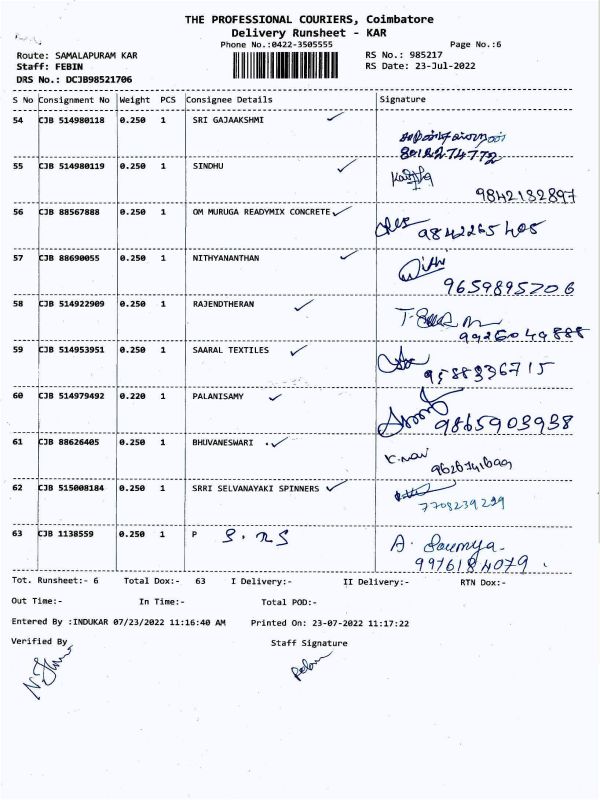 THE PROFESSIONAL COURIERS, Coimbatore
Delivery Runsheet - KAR
Phone No.:0422-3505555 Page No.:6
Route: SAMALAPURAM KAR RS No.: 985217
Staff: FEBIN RS Date: 23-Jul-2022
DRS No.: DCJB98521706
S No Consignment No Weight PCS Consignee Details Signature
54 CJB 514980118 0.250 1 SRI GAJAAKSHMI
55 CJB 514980119 0.250 1 SINDHU
9842132897
56 CJB 88567888 0.250 1 OM MURUGA READYMIX CONCRETE
9842265405
57 CJB 88690055 0.250 1 NITHYANANTHAN
9659895206
58 CJB 514922909 0.250 1 RAJENDTHERAN
59 CJB 514953951 0.250 1 SAARAL TEXTILES
9588336715
60 CJB 514979492 0.220 1 PALANISAMY
9865903938
61 CJB 88626405 0.250 1 BHUVANESWARI
62 CJB 515008184 0.250 1 SRRI SELVANAYAKI SPINNERS
7708239299
63 CJB 1138559 0.250 1 P A. Soumya.
9976184079.
Tot. Runsheet:- 6 Total Dox:- 63 I Delivery:- II Delivery:- RTN Dox:-
Out Time:- In Time:- Total POD:-
Entered By :INDUKAR 07/23/2022 11:16:40 AM Printed On: 23-07-2022 11:17:22
Verified By Staff Signature